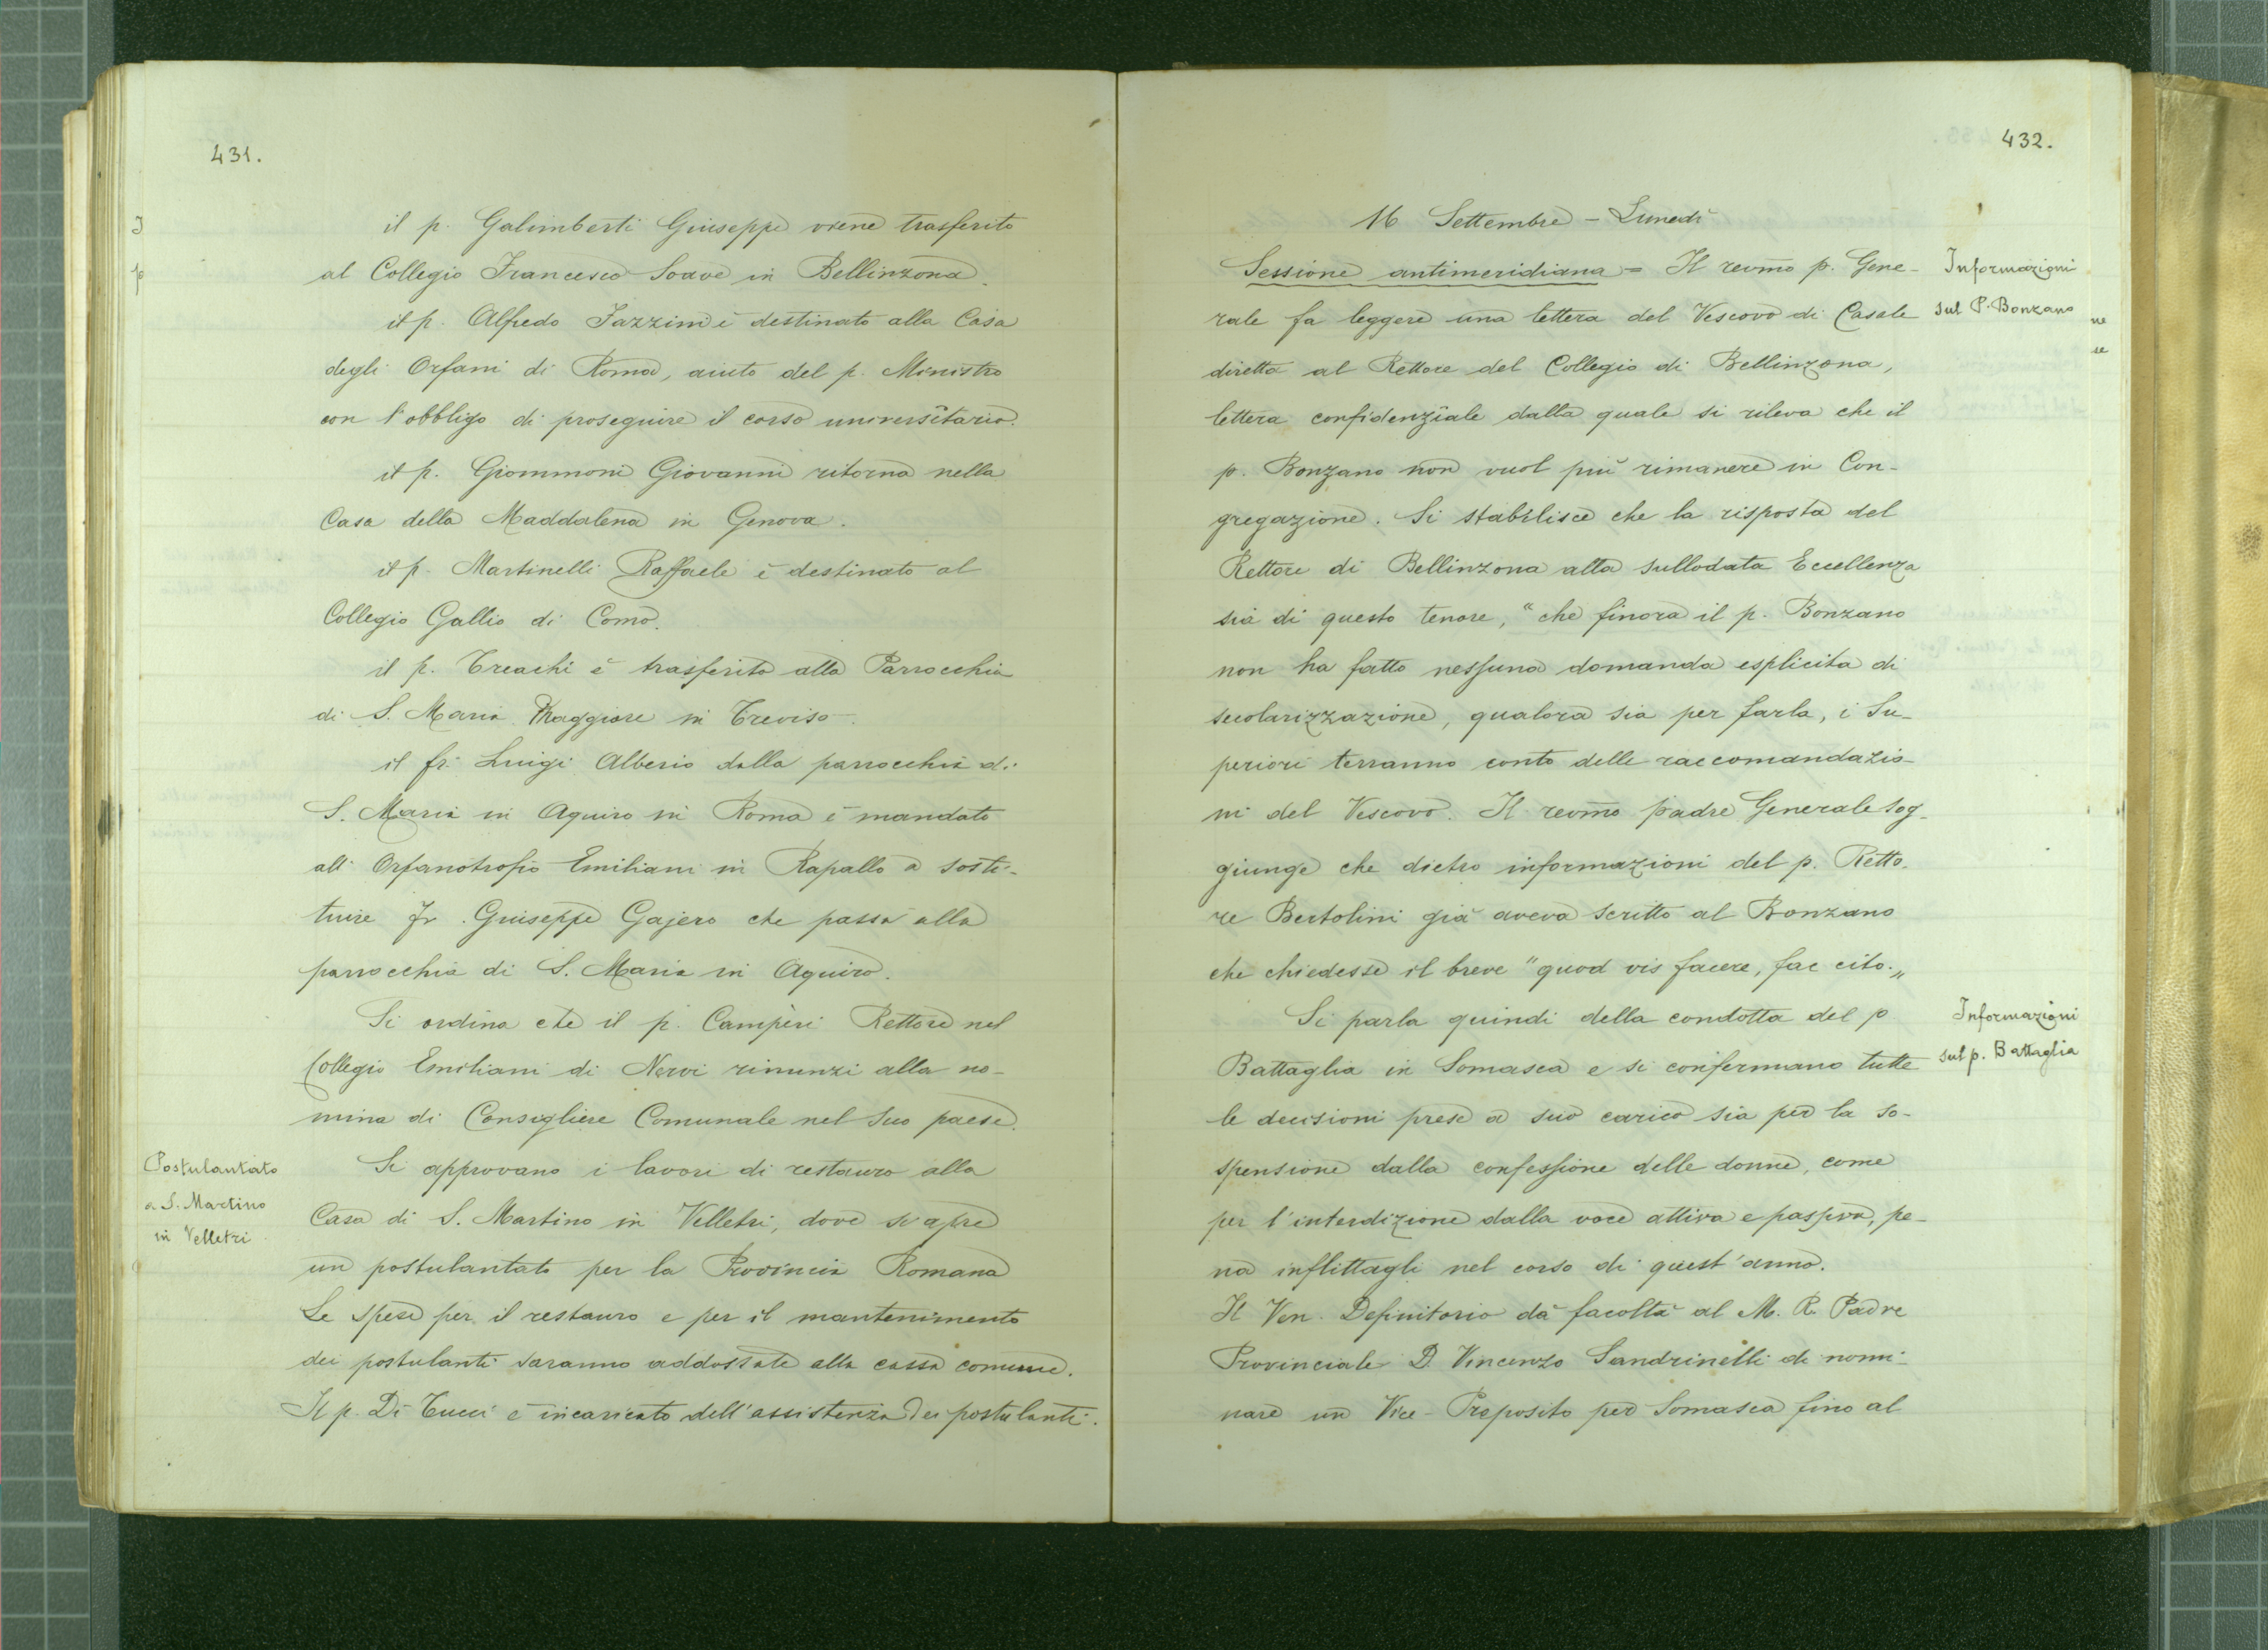 431.
il p. Galimberti Giuseppe viene trasferito
al Collegio Francesco Soave in Bellinzona.
il p. Alfredo Fazzini è destinato alla Casa
degli Orfani di Roma, aiuto del p. Ministro
con l'obbligo di proseguire il corso universitario.
il p. Giommoni Giovanni ritorna nella
Casa della Maddalena in Genova.
il p. Martinelli Raffaele è destinato al
Collegio Gallio di Como.
il p. Creachi è trasferito alla Parrocchia
di S. Maria Maggiore in Treviso.
il fr. Luigi Alberio dalla parrocchia di
S. Maria in Aquiro in Roma è mandato
all' Orfanotrofio Emiliani in Rapallo a sosti-
tuire fr. Giuseppe Gajero che passa alla
parrocchia di S. Maria in Aquiro.
Si ordina che il p. Campèri Rettore nel
Collegio Emiliani di Nervi rinunzi alla no-
mina di Consigliere Comunale nel suo paese.
Postulantato
a S. Martino
in Velletri
Si approvano i lavori di restauro alla
Casa di S. Martino in Velletri, dove si apre
un postulantato per la Provincia Romana
Le spese per il restauro e per il mantenimento
dei postulanti saranno addossate alla cassa comune.
Il p. Di Tucci è incaricato dell'assistenza dei postulanti.
432.
16 Settembre - Lunedì
Informazioni
sul P. Bonzano
Sessione antimeridiana = Il revmo p. Gene-
rale fa leggere una lettera del Vescovo di Casale
diretta al Rettore del Collegio di Bellinzona,
lettera confidenziale dalla quale si rileva che il
p. Bonzano non vuol più rimanere in Con-
gregazione. Si stabilisce che la risposta del
Rettore di Bellinzona alla sullodata Eccellenza
sia di questo tenore, "che finora il p. Bonzano
non ha fatto nessuna domanda esplicita di
secolarizzazione, qualora sia per farla, i Su-
periori terranno conto delle raccomandazio-
ni del Vescovo. Il revmo padre Generale sog-
giunge che dietro informazioni del p. Retto-
re Bertolini già aveva scritto al Bonzano
che chiedesse il breve "quod vis facere, fac cito."
Informazioni
sul p. Battaglia
Si parla quindi della condotta del p
Battaglia in Somasca e si confermano tutte
le decisioni prese a suo carico sia per la so-
spensione dalla confessione delle donne, come
per l'interdizione dalla voce attiva e passiva, pe-
na inflittagli nel corso di quest'anno.
Il Ven. Definitorio dà facoltà al M. R. Padre
Provinciale D. Vincenzo Sandrinelli di nomi-
nare un Vice-Preposito per Somasca fino al